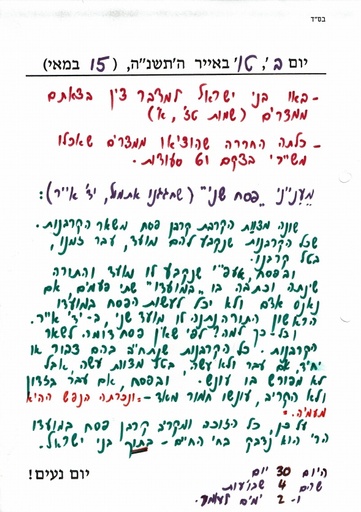 בס״ד
יום ב', ט"ו באייר ה'תשנ"ה, (15 במאי)
- באו בני ישראל למדבר סין בצאתם
ממצרים (שמות טז', א')
- כלתה החררה שהוציאו ממצרים שאכלו
משיירי בצקם ס' סעודות.
מעניני "פסח שני" (שחגגנו אתמול, יד' אייר):
שונה מצות הקרבת קרבן פסח משאר הקרבנות.
שכל הקרבנות שנקבע להם מועד, עבר זמנו,
בטל קרבנו.
ובפסח, אעפ"י שנקבע לו מועד והתורה
שינתה וכתבה בו "במועדו" שתי פעמים, אם
נאנס אדם ולא יכל לעשות הפסח במועדו
הראשון התורה נתנה לו מועד שני, ב-יד' אייר.
וכל-כך למה? לפי שאין פסח דומה לשאר
הקרבנות. כל הקרבנות שנתחייב בהם צבור או
יחיד, אם עבר ולא עשה, בטל מצות עשה, אבל
לא מפורש בו עונש. ובפסח, אם עבר בזדון
ולא הקריב, עונשו חמור מאד - ונכרתה הנפש ההיא
מעמיה.
על כן, כל הזוכה ומקריב קרבן פסח במועדו
הרי הוא נדבק בחי החיים - בתוך בני ישראל.
יום נעים!
היום 30 יום
שהם 4 שבועות
ו-2 ימים לעומר.